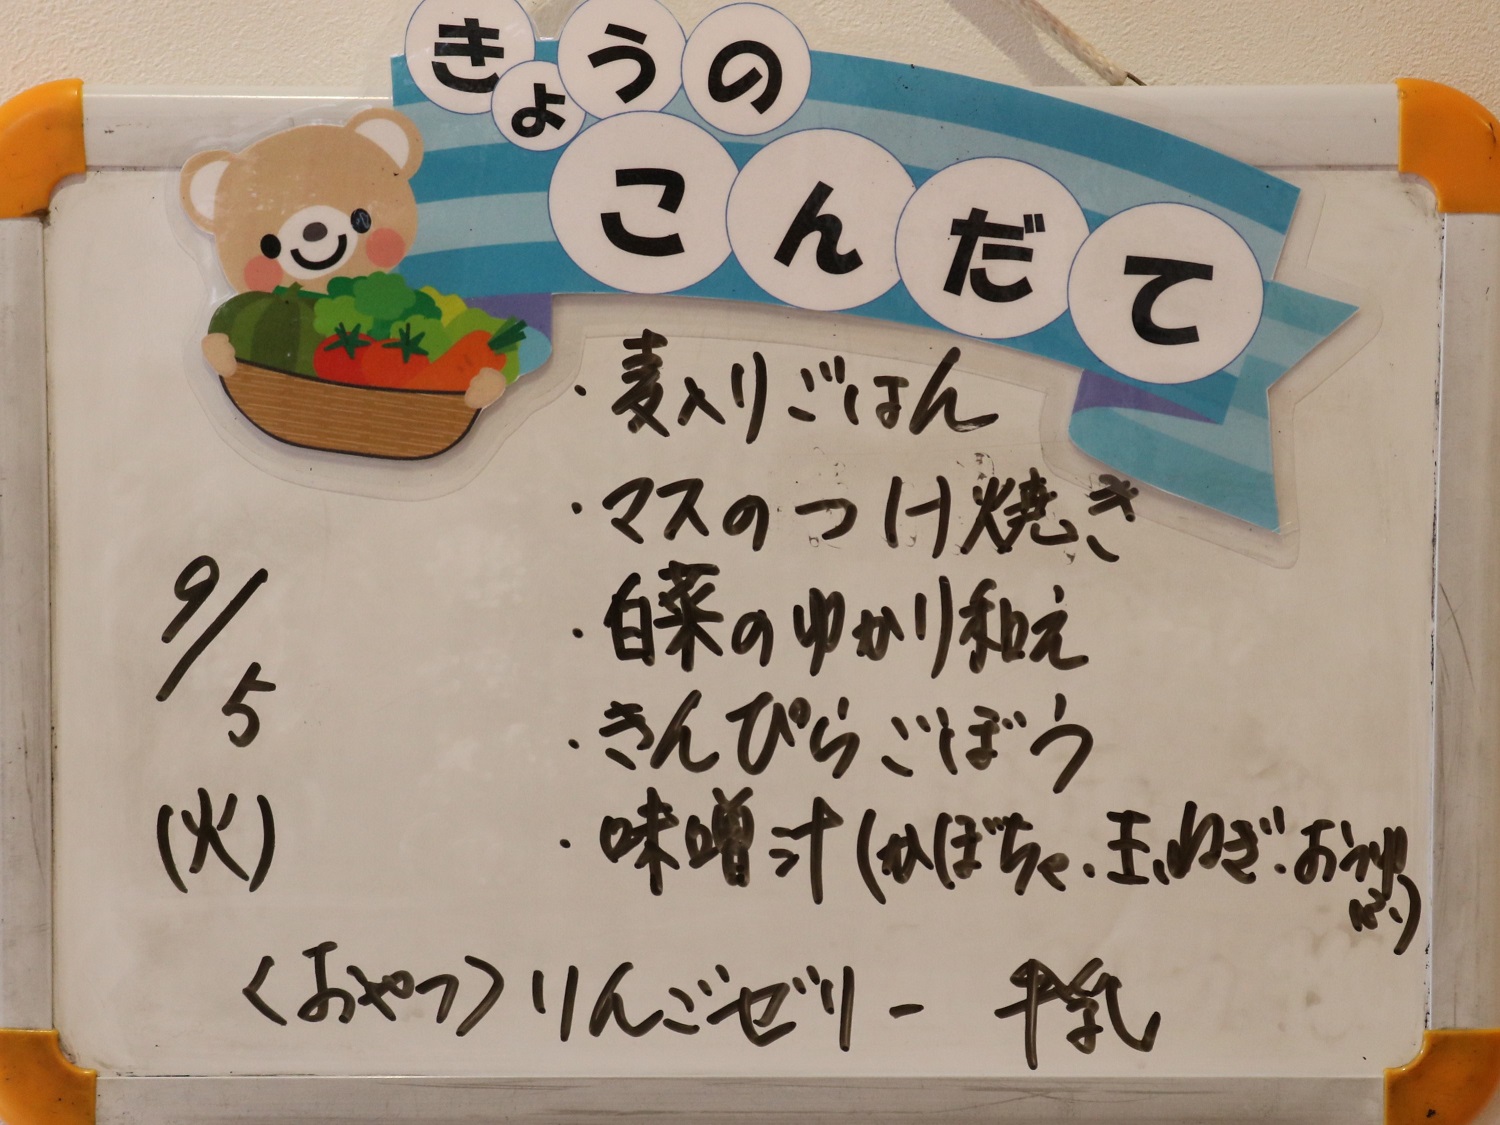 きょうの
こんだて
・麦入りごはん
・マスのつけ焼き
9/5
・白菜のゆかり和え
・きんぴらごぼう
(火)
・味噌汁(かぼちゃ、玉ねぎ、おつゆ
ふ)
〈おやつ〉りんごゼリー 牛乳